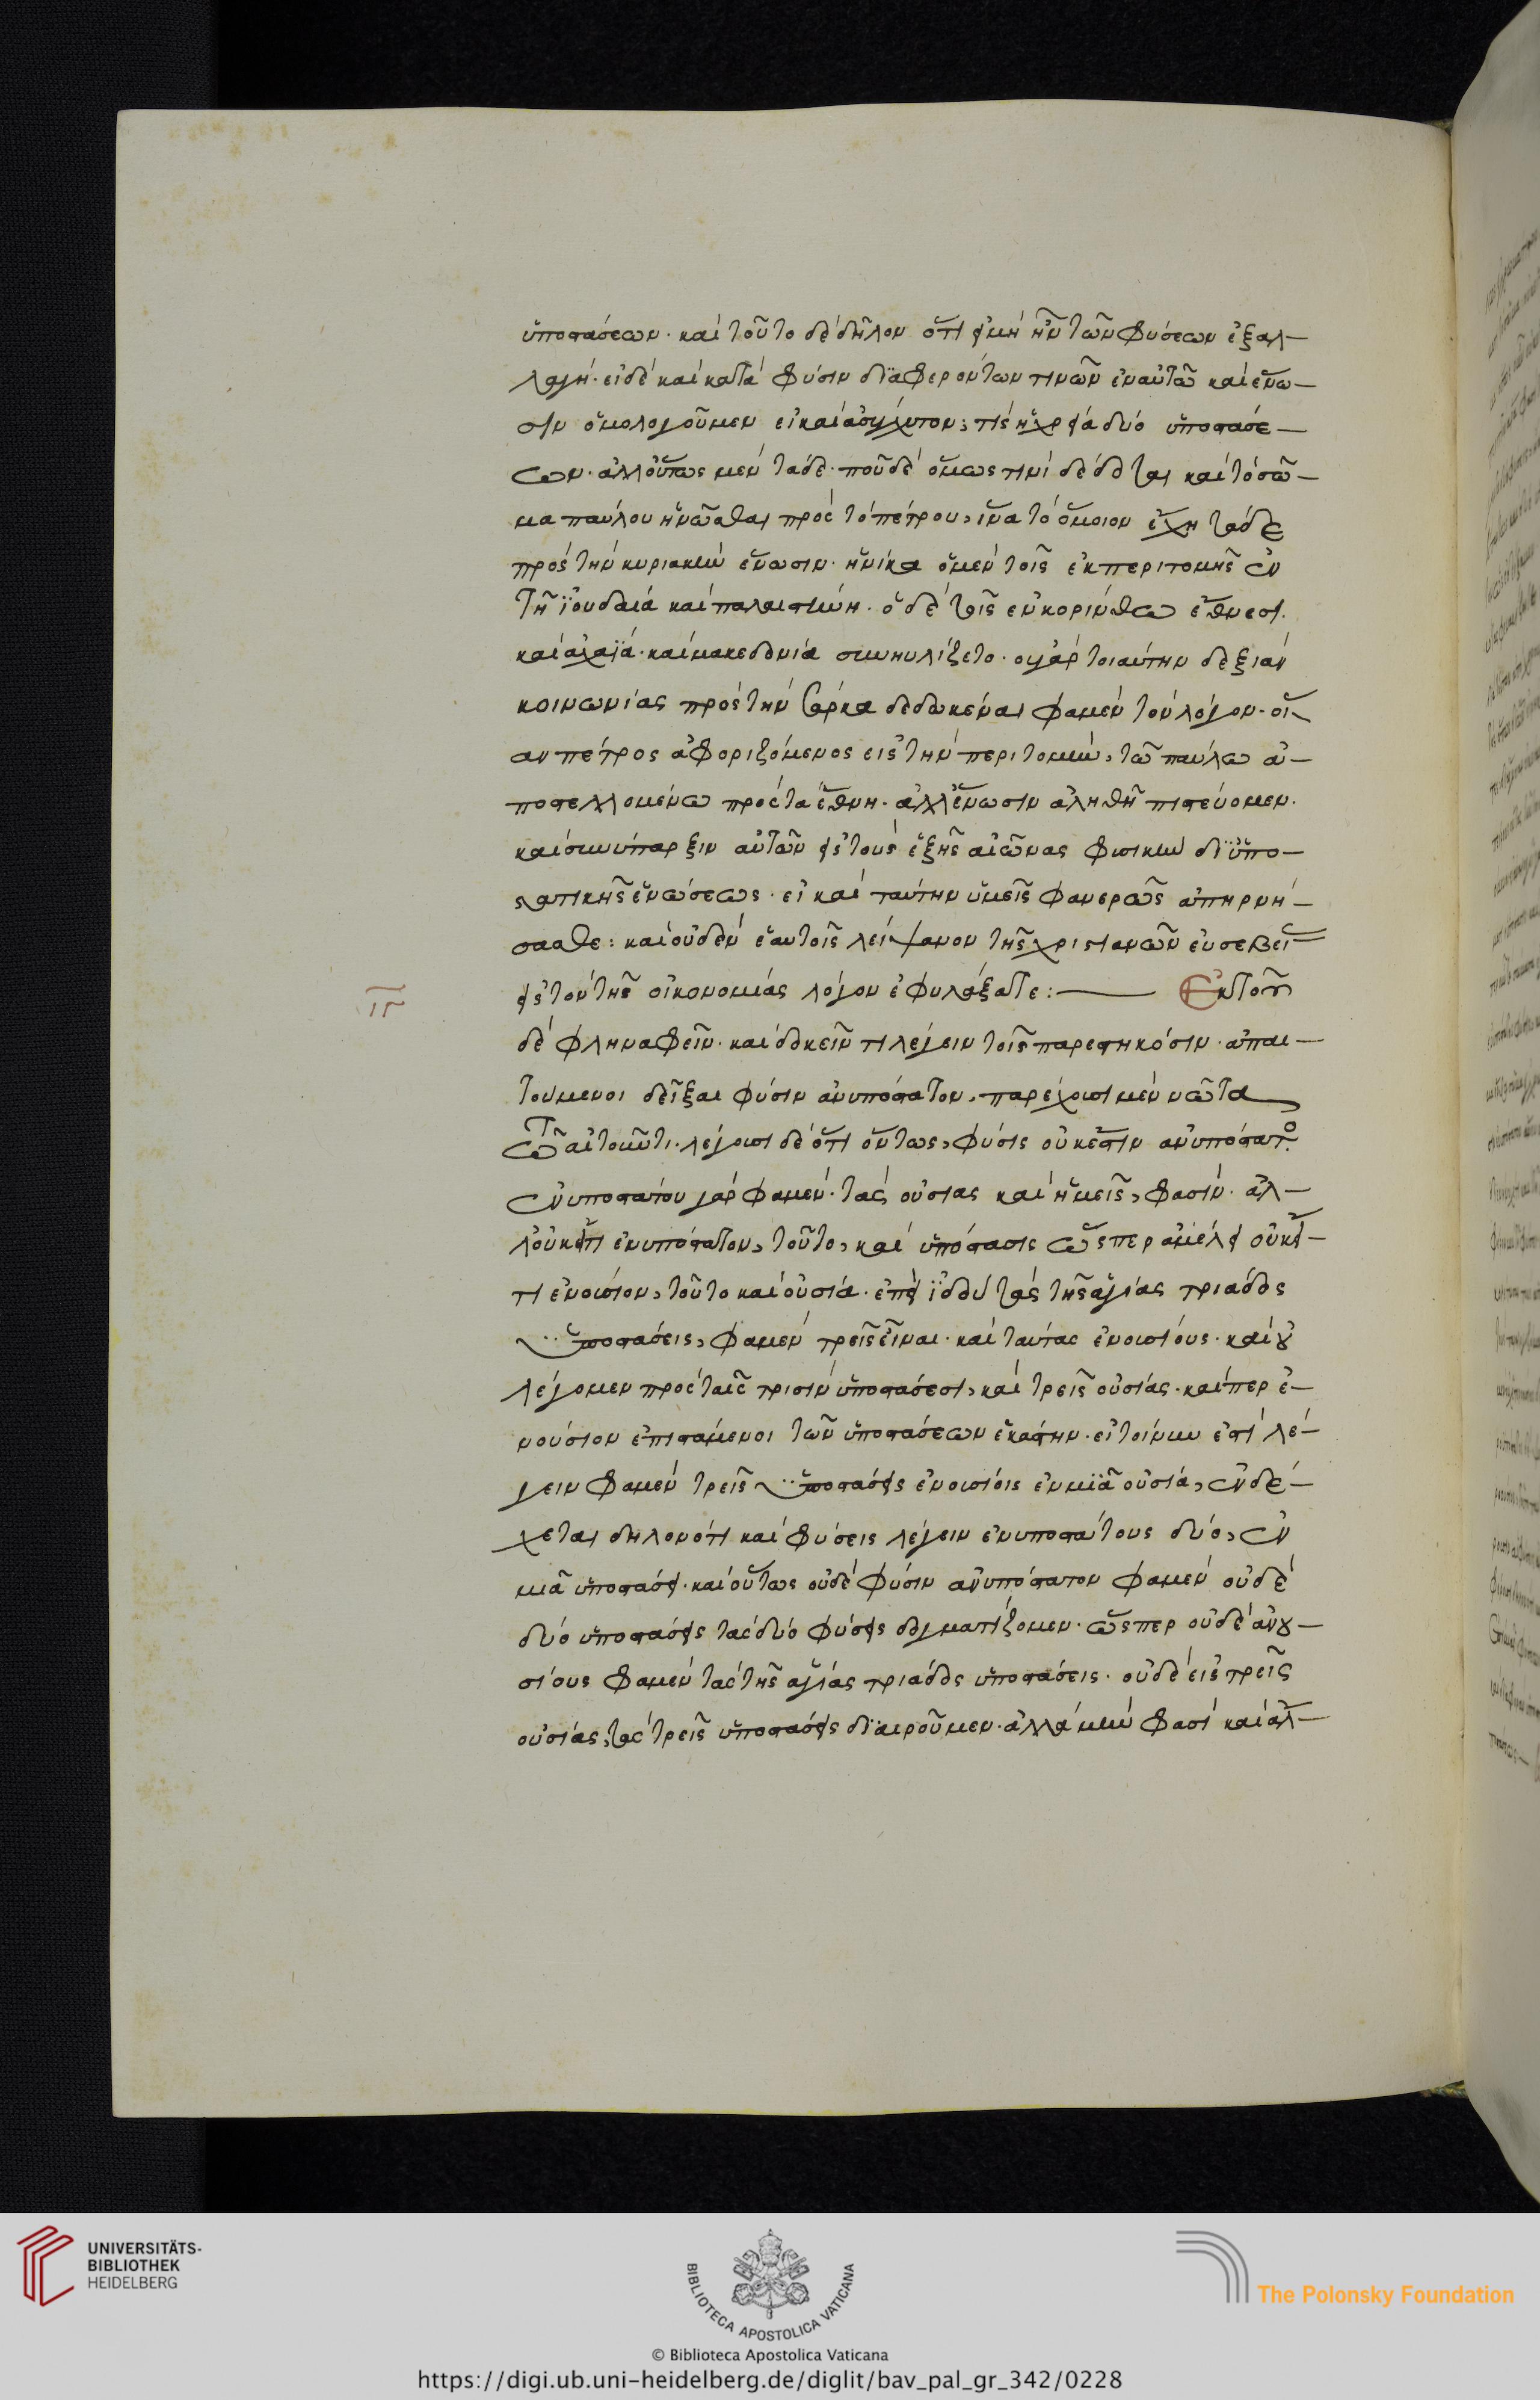 ὑποστάσεων· καὶ τοῦτο δὲ δῆλον ὅτι εἰ μὴ ἦν τῶν φύσεων ἐξαλ–
λαγή· εἰ δὲ καὶ κατὰ φύσιν διαφερόντων τινῶν ἐν αὐτῶ καὶ ἕνω–
σιν ὁμολογοῦμεν εἰ καὶ ἀσύγχυτον; τίς ἡ χρεία δύο ὑποστάσε–
ων· ἀλλ' οὕτως μὲν τάδε· ποῦ δὲ ὅμως τινὶ δέδεκται καὶ τὸ σῶ–
μα παύλου ἡνῶσθαι πρὸς τὸ πέτρου, ἵνα τὸ ὅμοιον ἔχη τάδε
πρὸς τὴν κυριακὴν ἕνωσιν· ἡνίκα ὁ μὲν τοῖς ἐκ περιτομῆς ἐν
τῆ ἰουδαία καὶ παλαιστίνη· ὁ δὲ τοῖς ἐν κορίνθω ἔθνεσι·
καὶ ἀχαΐα· καὶ μακεδονία συνηυλίζετο· οὐ γὰρ τοιαύτην δεξιὰν
κοινωνίας πρὸς τὴν σάρκα δεδωκέναι φαμὲν τὸν λόγον· οἵ–
αν πέτρος ἀφοριζόμενος εἰς τὴν περιτομὴν, τῶ παύλω ἀ–
ποστελλομένω πρὸς τὰ ἔθνη· ἀλλ' ἕνωσιν ἀληθῆ πιστεύομεν·
καὶ συνύπαρξιν αὐτῶν εἰς τοὺς ἑξῆς αἰῶνας φυσικὴν δι' ὑπο–
στατικῆς ἑνώσεως· εἰ καὶ ταύτην ὑμεῖς φανερῶς ἀπηρνή–
σασθε: καὶ οὐδὲν ἑαυτοῖς λείψανον τῆς χριστιανῶν εὐσεβεί
εἰς τὸν τῆς οἰκονομίας λόγον ἐφυλάξατε: — Ἐκ τοῦ
ιγ
δὲ φληναφεῖν· καὶ δοκεῖν τι λέγειν τοῖς παρεστηκόσιν· ἀπαι–
τούμενοι δεῖξαι φύσιν ἀνυπόστατον, παρέχουσι μὲν νῶτα
τῶ αἰτοῦντι· λέγουσι δὲ ὅτι ὄντως, φύσις οὐκ ἔστιν ἀνυπόστατο
ἐνυποστάτου γὰρ φαμὲν· τὰς οὐσίας καὶ ἡμεῖς, φασίν· ἀλ–
λ' οὐκ εἴ τι ἐνυπόστατον, τοῦτο, καὶ ὑπόστασις ὥσπερ ἀμέλει οὐκ εἴ–
τι ἐνούσιον, τοῦτο καὶ οὐσία· ἐπεὶ ἰδοὺ τὰς τῆς ἁγίας τριάδος
ὑποστάσεις, φαμὲν τρεῖς εἶναι· καὶ ταύτας ἐνουσίους· καὶ οὐ
λέγομεν πρὸς ταῖς τρισὶν ὑποστάσεσι, καὶ τρεῖς οὐσίας· καίπερ ἐ–
νούσιον ἐπιστάμενοι τῶν ὑποστάσεων ἑκάστην· εἰ τοίνυν ἐστὶ λέ–
γειν φαμὲν τρεῖς ὑποστάσεις ἐνουσίοις ἐν μιᾶ οὐσία, ἐνδέ–
χεται δηλονότι καὶ φύσεις λέγειν ἐνυποστάτους δύο, ἐν
μιᾶ ὑποστάσει· καὶ οὕτως οὐδὲ φύσιν ἀνυπόστατον φαμὲν οὐδὲ
δύο ὑποστάσεις τὰς δύο φύσεις δογματίζομεν· ὥσπερ οὐδὲ ἀνου–
σίους φαμὲν τὰς τῆς ἁγίας τριάδος ὑποστάσεις· οὐδὲ εἰς τρεῖς
οὐσίας, τὰς τρεῖς ὑποστάσεις διαιροῦμεν· ἀλλὰ μὴν φασὶ καὶ ἀλ–
UNIVERSITÄTS-
BIBLIOTHEK
HEIDELBERG
BIBLIOTECA APOSTOLICA VATICANA
The Polonsky Foundation
© Biblioteca Apostolica Vaticana
https://digi.ub.uni-heidelberg.de/diglit/bav_pal_gr_342/0228